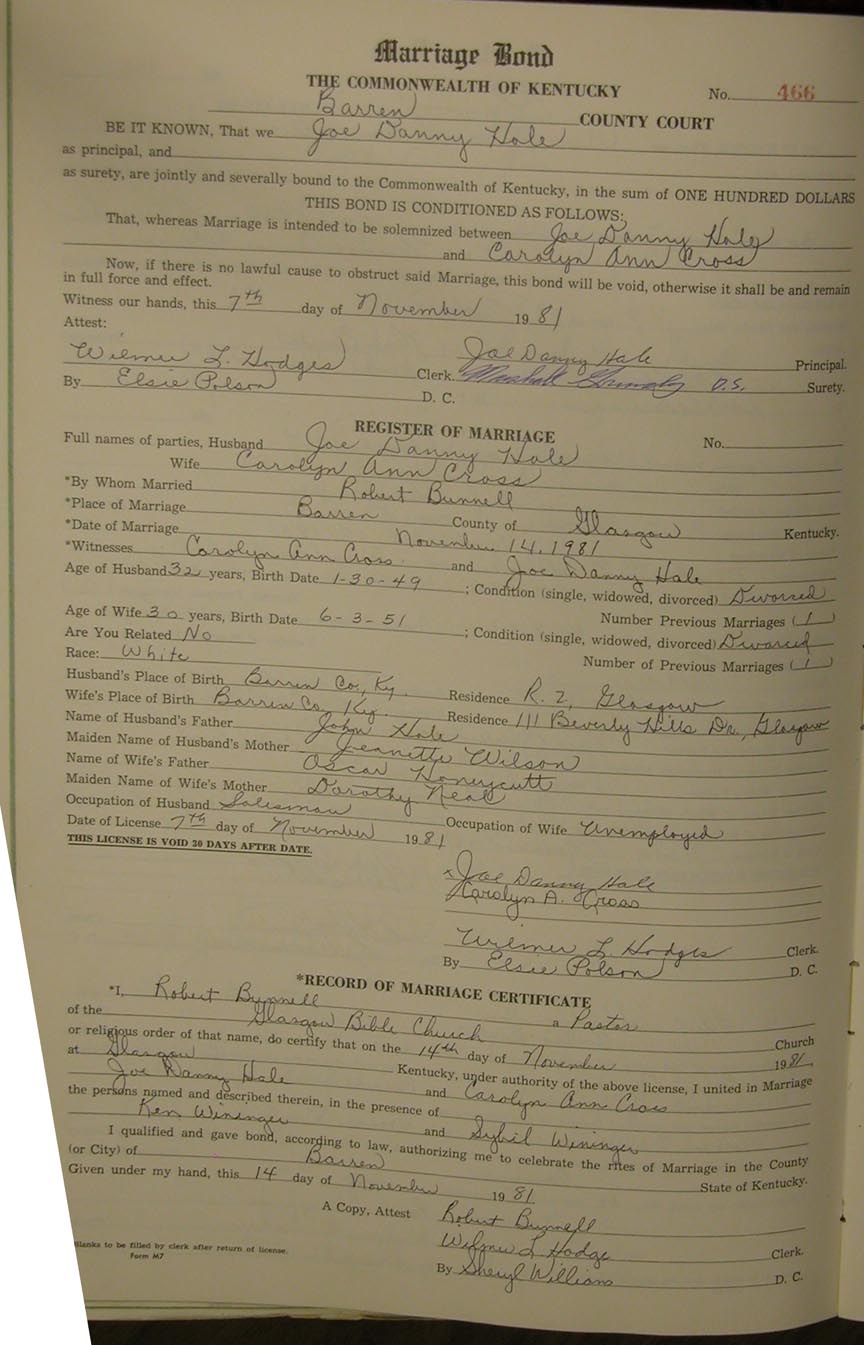 Marriage Bond
THE COMMONWEALTH OF KENTUCKY No. 466
Barren COUNTY COURT
BE IT KNOWN, That we Joe Danny Hale
as principal, and
as surety, are jointly and severally bound to the Commonwealth of Kentucky, in the sum of ONE HUNDRED DOLLARS
THIS BOND IS CONDITIONED AS FOLLOWS:
That, whereas Marriage is intended to be solemnized between Joe Danny Hale
and Carolyn Ann Cross
Now, if there is no lawful cause to obstruct said Marriage, this bond will be void, otherwise it shall be and remain
in full force and effect.
Witness our hands, this 7th day of November 1981
Attest:
Wilmer L. Hodges Clerk. Joe Danny Hale Principal.
By Elsie Polson D. C. Marshall D.S. Surety.
REGISTER OF MARRIAGE
Full names of parties, Husband Joe Danny Hale No.
Wife Carolyn Ann Cross
*By Whom Married Robert Bunnell
*Place of Marriage Barren County of Glasgow Kentucky.
*Date of Marriage November 14, 1981
*Witnesses Carolyn Ann Cross and Joe Danny Hale
Age of Husband 32 years, Birth Date 1-30-49; Condition (single, widowed, divorced) Divorced
Number Previous Marriages (1)
Age of Wife 30 years, Birth Date 6-3-51; Condition (single, widowed, divorced) Divorced
Are You Related No Number of Previous Marriages (1)
Race: White
Husband's Place of Birth Barren Co., Ky. Residence R. 2, Glasgow
Wife's Place of Birth Barren Co. Ky. Residence 111 Beverly Hills Dr., Glasgow
Name of Husband's Father John Hale
Maiden Name of Husband's Mother Jeanette Wilson
Name of Wife's Father Oscar Honeycutt
Maiden Name of Wife's Mother Dorothy Neal
Occupation of Husband Salesman Occupation of Wife Unemployed
Date of License 7th day of November 1981
THIS LICENSE IS VOID 30 DAYS AFTER DATE.
x Joe Danny Hale
Carolyn A. Cross
Wilmer L. Hodges Clerk.
By Elsie Polson D. C.
*RECORD OF MARRIAGE CERTIFICATE
*I, Robert Bunnell a Pastor
of the Glasgow Bible Church Church
or religious order of that name, do certify that on the 14th day of November 1981
at Glasgow Kentucky, under authority of the above license, I united in Marriage
Joe Danny Hale and Carolyn Ann Cross
the persons named and described therein, in the presence of
Ken Wininger and Sybil Wininger
I qualified and gave bond, according to law, authorizing me to celebrate the rites of Marriage in the County
(or City) of Barren State of Kentucky.
Given under my hand, this 14 day of November 1981
A Copy, Attest Robert Bunnell
Wilmer L Hodge Clerk.
By Sheryl Williams D. C.
lanks to be filled by clerk after return of license.
Form M7